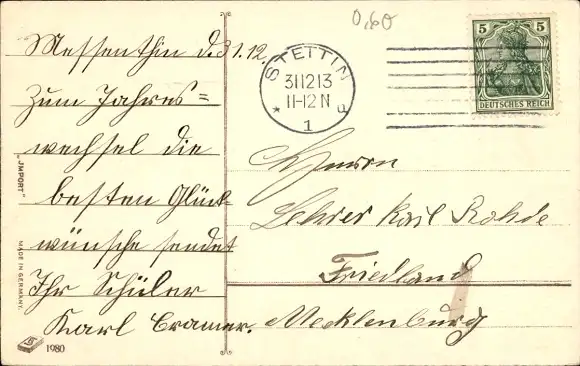 Messenthin d. 31.12.
Zum Jahres=
wechsel die
besten Glück-
wünsche sendet
Ihr Schüler
Karl Cramer.
0,60
STETTIN
311213
11-12 N
* 1 P
5 5
DEUTSCHES REICH
Herrn
Lehrer Karl Rohde
Friedland
Mecklenburg
"IMPORT"
MADE IN GERMANY.
1980